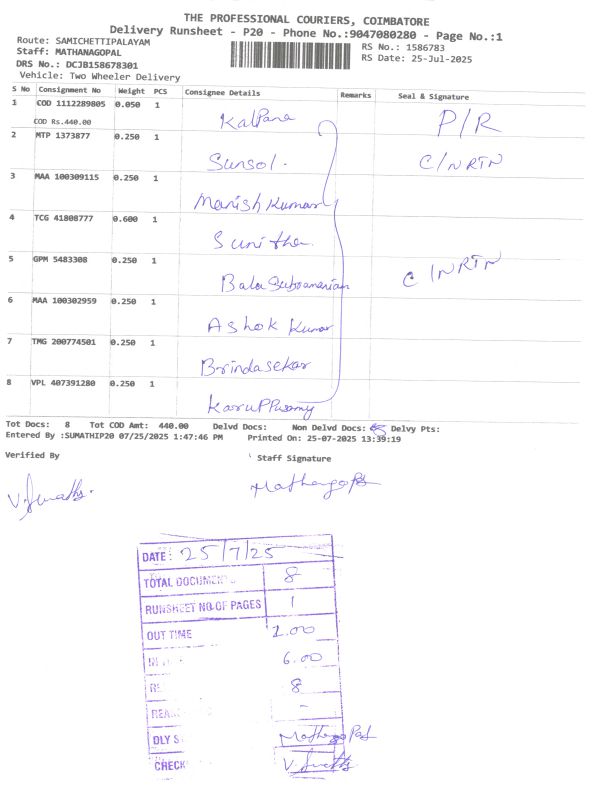 THE PROFESSIONAL COURIERS, COIMBATORE
Delivery Runsheet - P20 - Phone No.:9047080280 - Page No.:1
Route: SAMICHETTIPALAYAM
RS No.: 1586783
Staff: MATHANAGOPAL
RS Date: 25-Jul-2025
DRS No.: DCJB158678301
Vehicle: Two Wheeler Delivery
S No Consignment No Weight PCS Consignee Details Remarks Seal & Signature
1 COD 1112289805 0.050 1 Kalpana P/R
COD Rs.440.00
2 MTP 1373877 0.250 1 Sunsol. C/NRTN
3 MAA 100309115 0.250 1 Manish Kumar
4 TCG 41808777 0.600 1 Sunitha
5 GPM 5483308 0.250 1 Bala Subramanian C/NRTN
6 MAA 100302959 0.250 1 Ashok Kumar
7 TMG 200774501 0.250 1 Brindasekar
8 VPL 407391280 0.250 1 Karuppusamy
Tot Docs: 8 Tot COD Amt: 440.00 Delvd Docs: Non Delvd Docs: Delvy Pts:
Entered By :SUMATHIP20 07/25/2025 1:47:46 PM Printed On: 25-07-2025 13:39:19
Verified By Staff Signature
Mathangopal
DATE: 25/7/25
TOTAL DOCUMEN 8
RUNSHEET NO.OF PAGES 1
OUT TIME 2.00
IN 6.00
RE 8
REA -
DLY S Mathangopal
CHECK